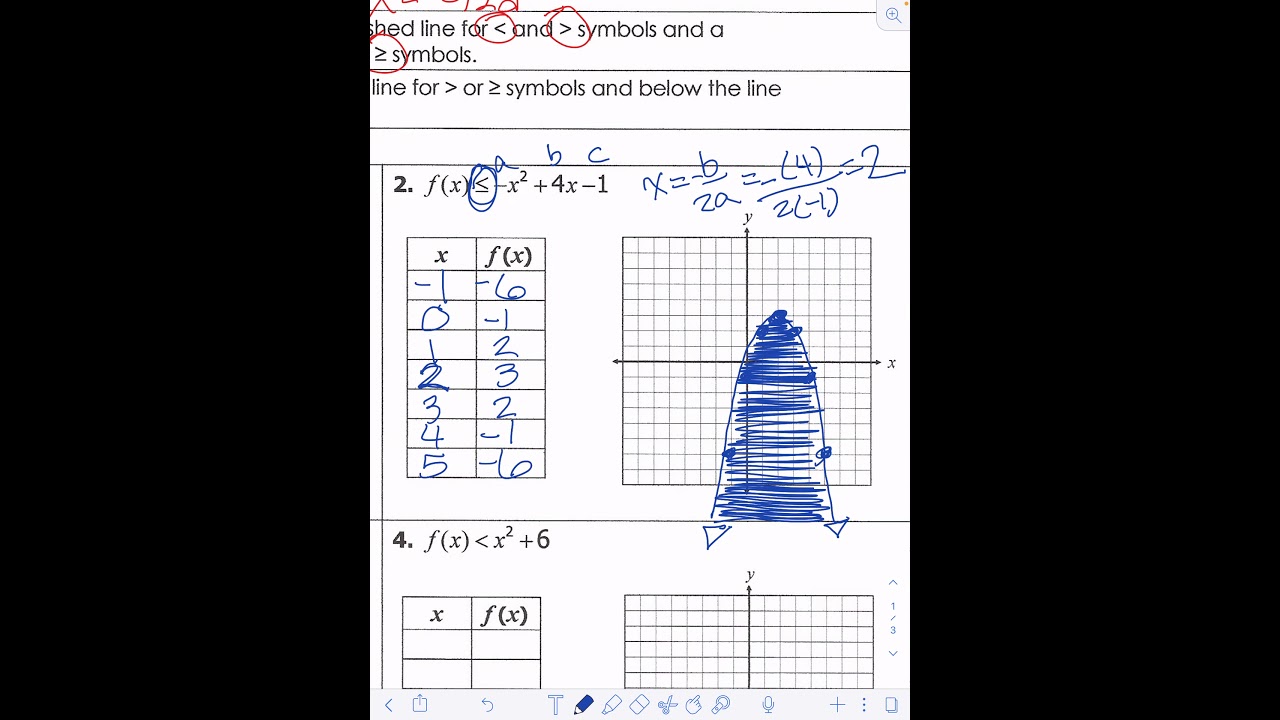 shed line for < and > symbols and a
≥ symbols.
line for > or ≥ symbols and below the line
a b c
2. f(x) ≤ -x² + 4x - 1
x = -b/2a = -(4)/2(-1) = 2
x f(x)
-1 -6
0 -1
1 2
2 3
3 2
4 -1
5 -6
y
x
4. f(x) < x² + 6
x f(x)
y
1
/
3
T